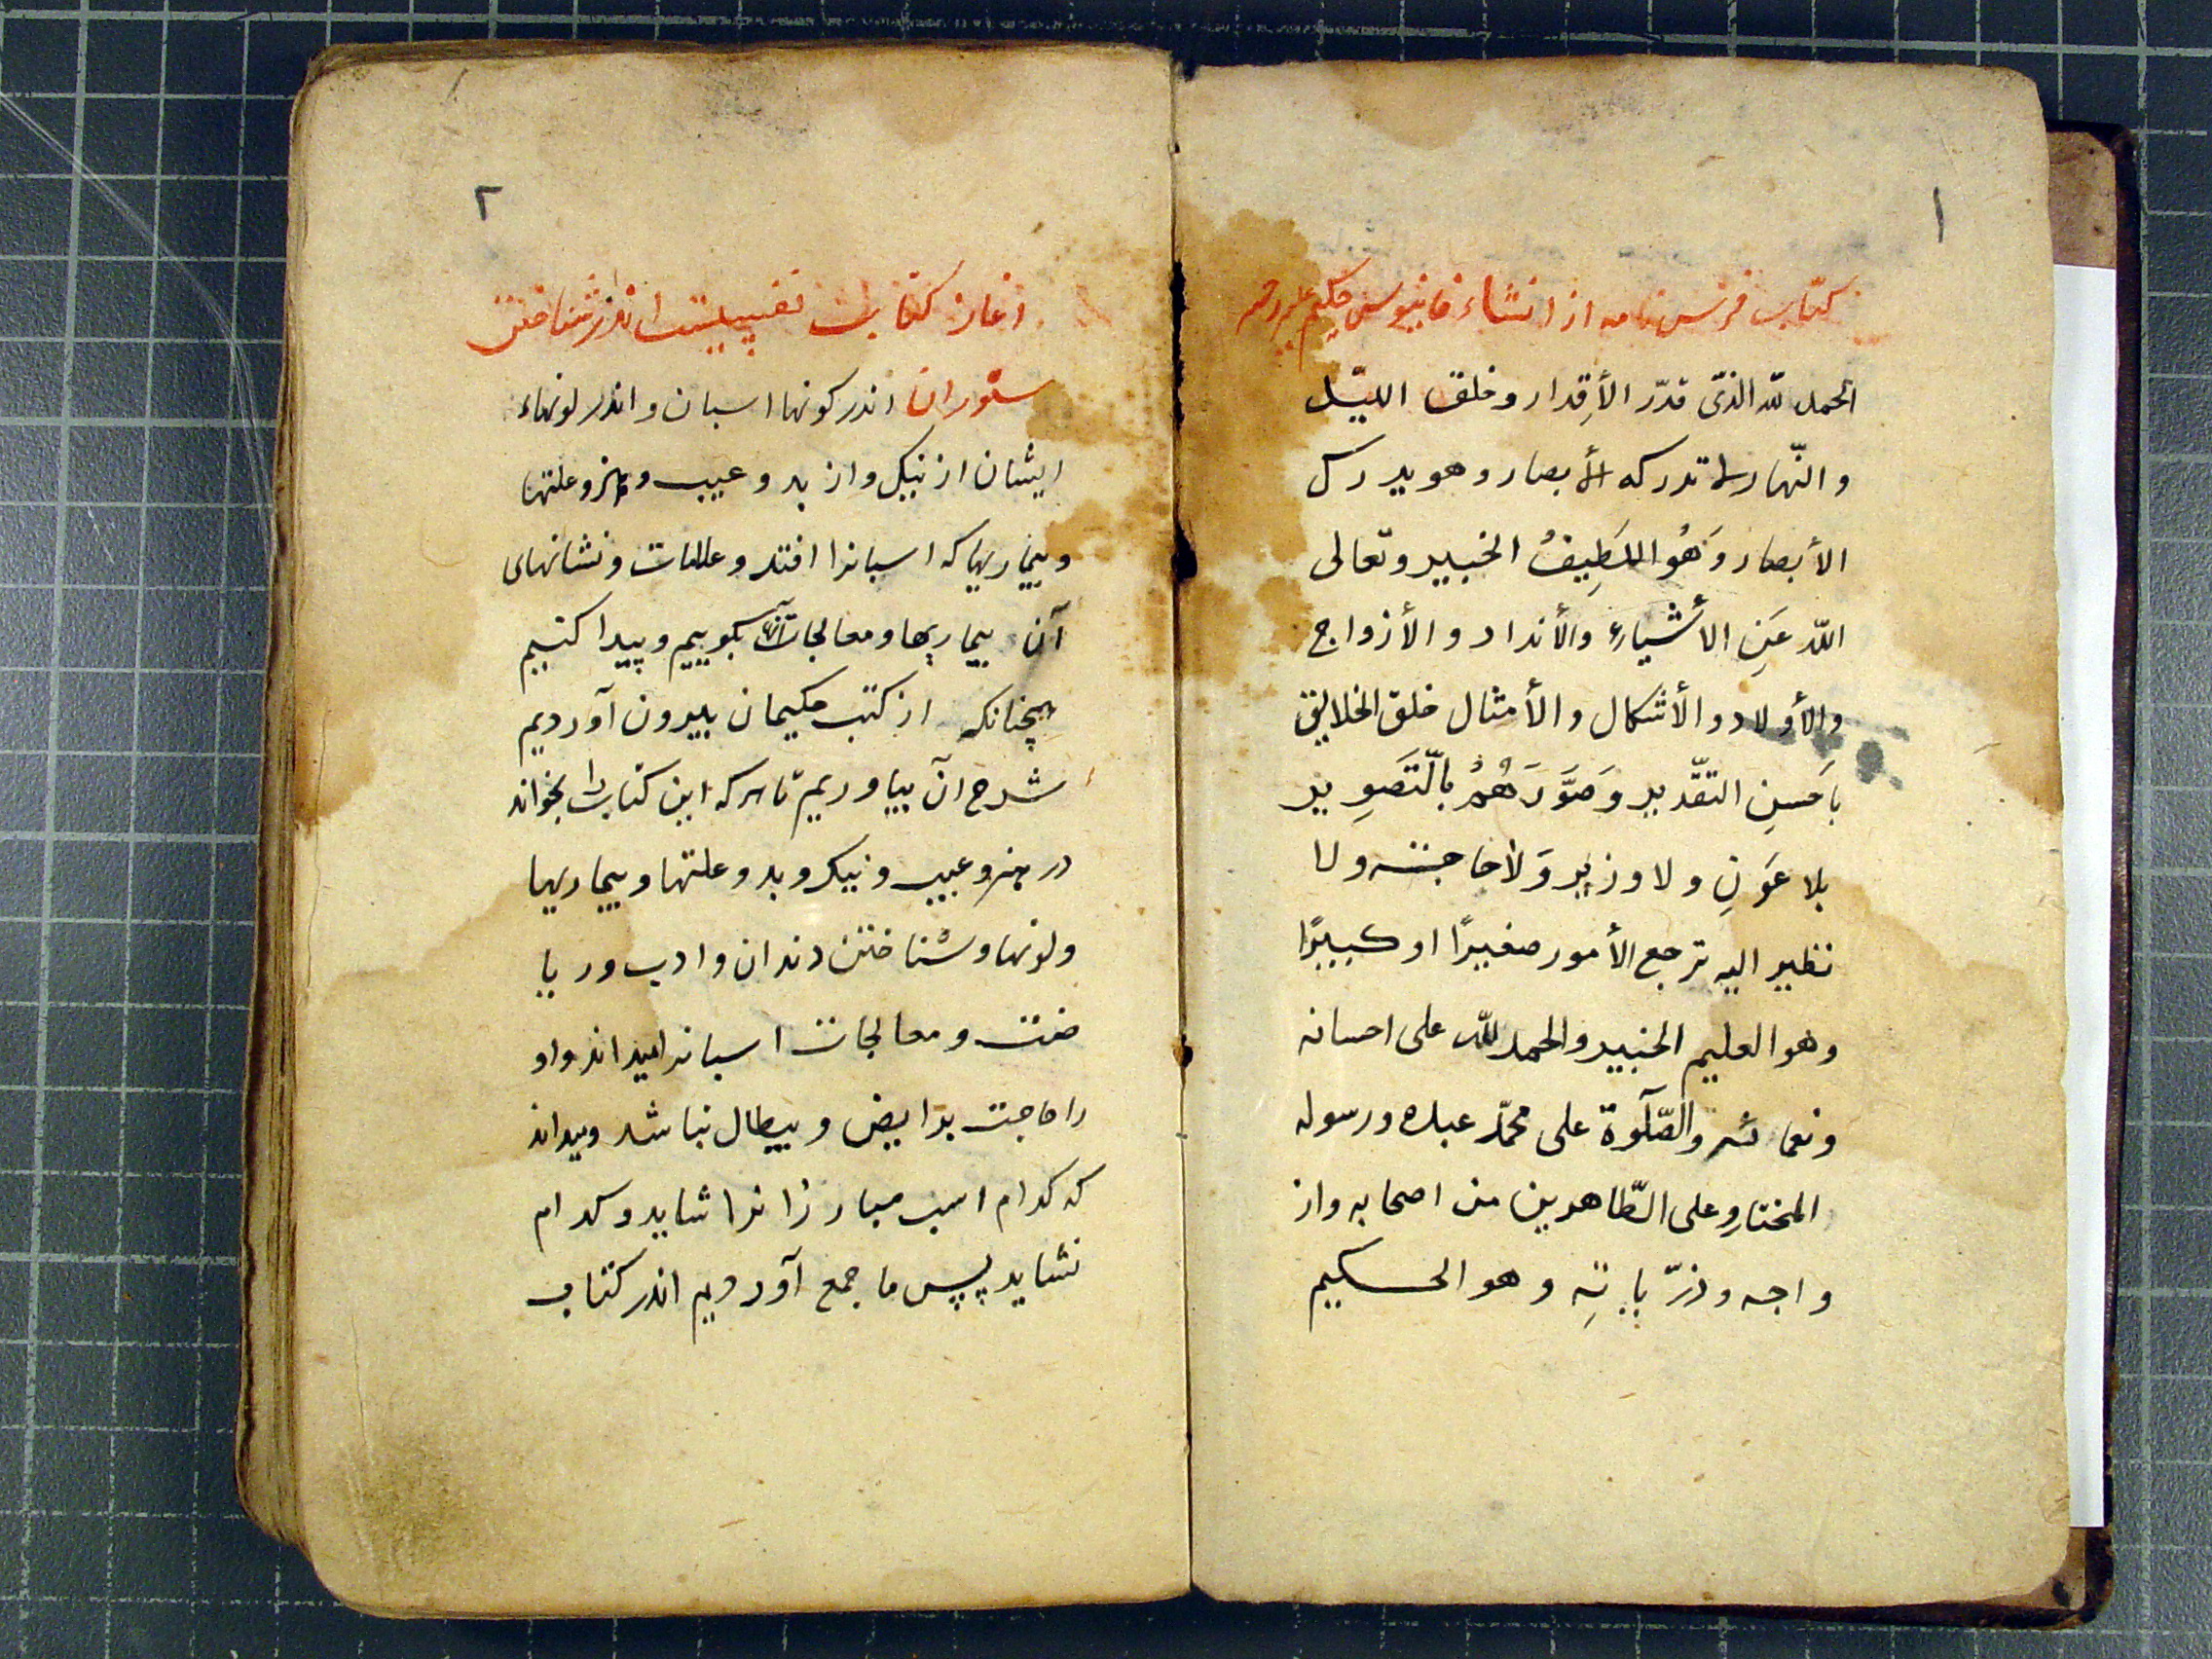 ١
كتاب فرس نامه از انشاء فانيوس حكيم عليه رحمه
الحمد للّه الذّى قدّر الأقِدار وخلق الليّل
والنّهار لا تدركه الأبصار وهو يدرك
الأبصار وَهُو اللطَيِفُ الخبير وتعالى
اللّه عَنِ الأشياء والأنداد والأزواج
والأولاد والأشكال والأمثال خلق الخلايق
باَحسنِ التقّدير وَصَوَّرَهُمْ بالّتصَوِير
بلا عَونِ ولا وزير وَلاَ حاجته ولا
نظير اليه ترجع الأمور صغيرًا او كبيرًا
وهو العليم الخبير والحمد للّه على احسانه
ونعمائه والصّلَوة على محمّد عبده ورسوله
المختار وعلى الطّاهرين من اصحابه واز
واجه وذرّياتِه وهو الحكيم
٢
اغاز كتاب اندر شناختن
ستوران اندر كونها اسبان واندر لونهاء
ايشان از نيك واز بد وعيب وهنر وعلتها
وبيماريها كه اسبانرا افتد وعلامات ونشانهاى
آن بيماريها ومعالجات آنها بكوييم وپيدا كنيم
همچنانكه از كتب حكيمان بيرون آورديم
شرح آن بياوريم تا هركه اين كتاب را بخواند
در هنر وعيب ونيك وبد وعلتها وبيماريها
ولونها وشناختن دندان وادب ور يا
ضت ومعالجات اسبانرا بداند واو
را حاجت برايض وبيطال نباشد وبداند
كه كدام اسب مبارزانرا شايد وكدام
نشايد پس ما جمع آورديم اندر كتاب